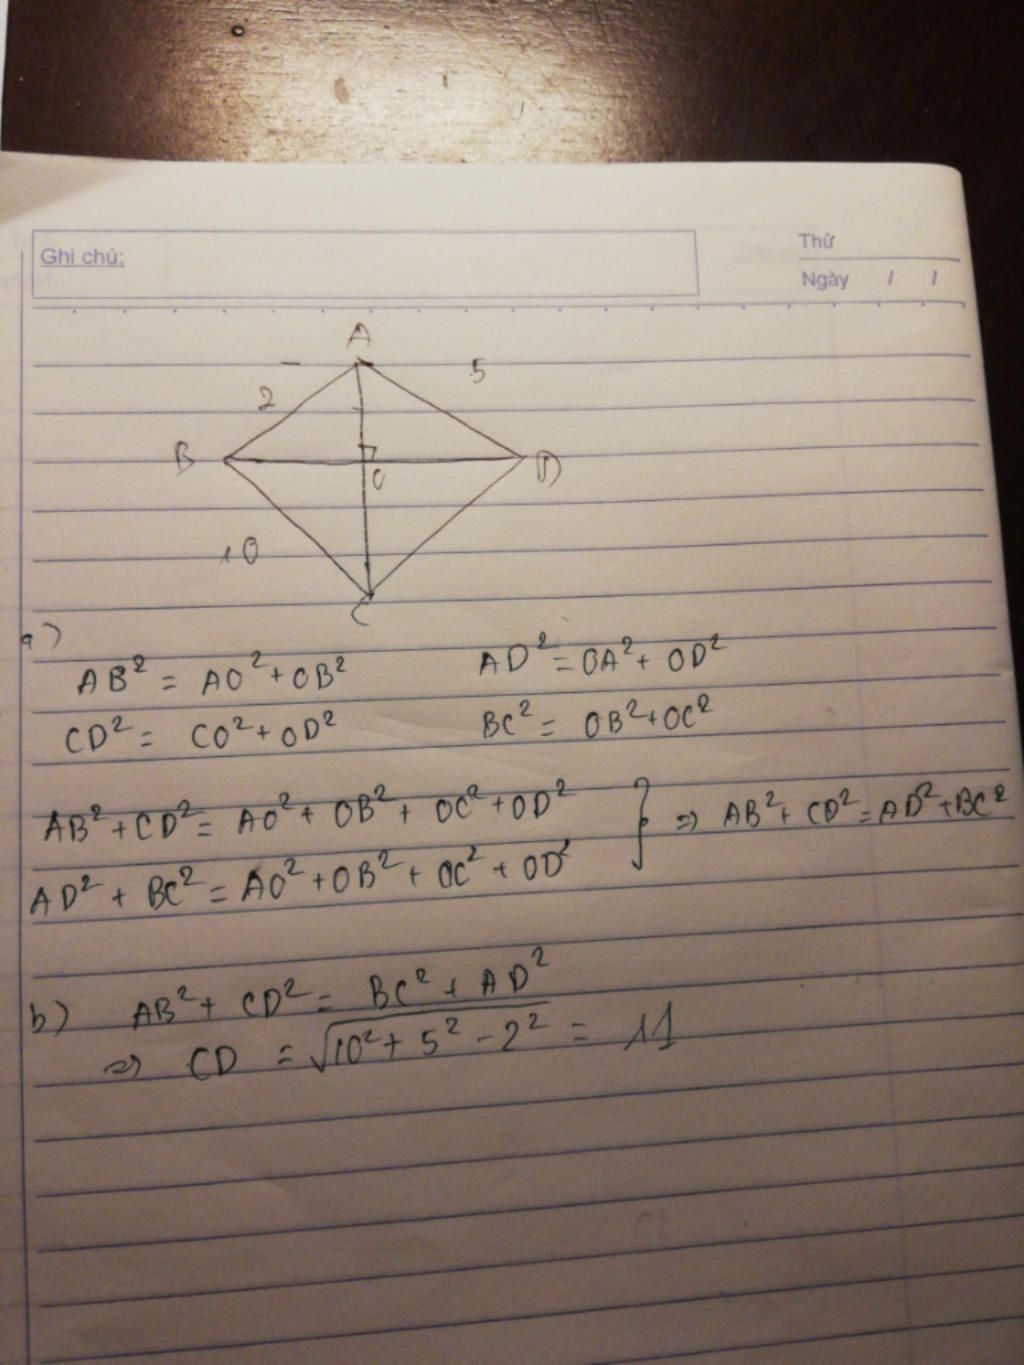 Ghi chú:
Thứ
Ngày / /
A
2
5
B
O
D
10
C
a)
AB² = AO² + OB² AD² = OA² + OD²
CD² = CO² + OD² BC² = OB² + OC²
AB² + CD² = AO² + OB² + OC² + OD² } => AB² + CD² = AD² + BC²
AD² + BC² = AO² + OB² + OC² + OD²
b) AB² + CD² = BC² + AD²
=> CD = √(10² + 5² - 2²) = 11